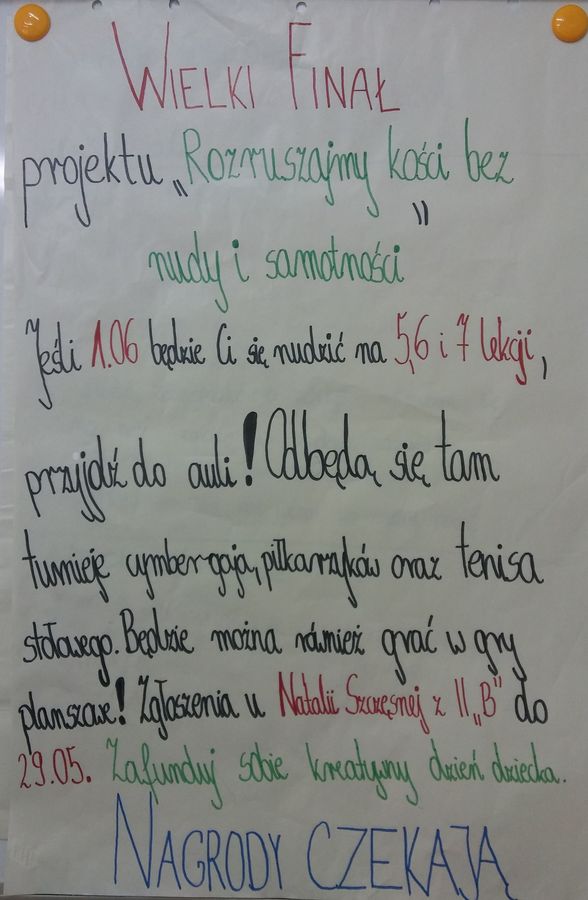 WIELKI FINAŁ
projektu „Rozruszajmy kości bez
nudy i samotności”
Jeśli 1.06 będzie Ci się nudzić na 5,6 i 7 lekcji,
przyjdź do auli! Odbędą się tam
turnieje cymbergaja, piłkarzyków oraz tenisa
stołowego. Będzie można również grać w gry
planszowe! Zgłoszenia u Natalii Szczęsnej z II „B” do
29.05. Zafunduj sobie kreatywny dzień dziecka.
NAGRODY CZEKAJĄ